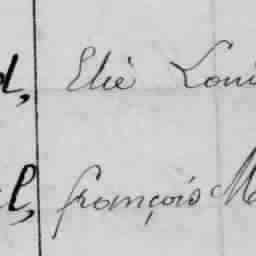 d, Elie Loui
l, françois M